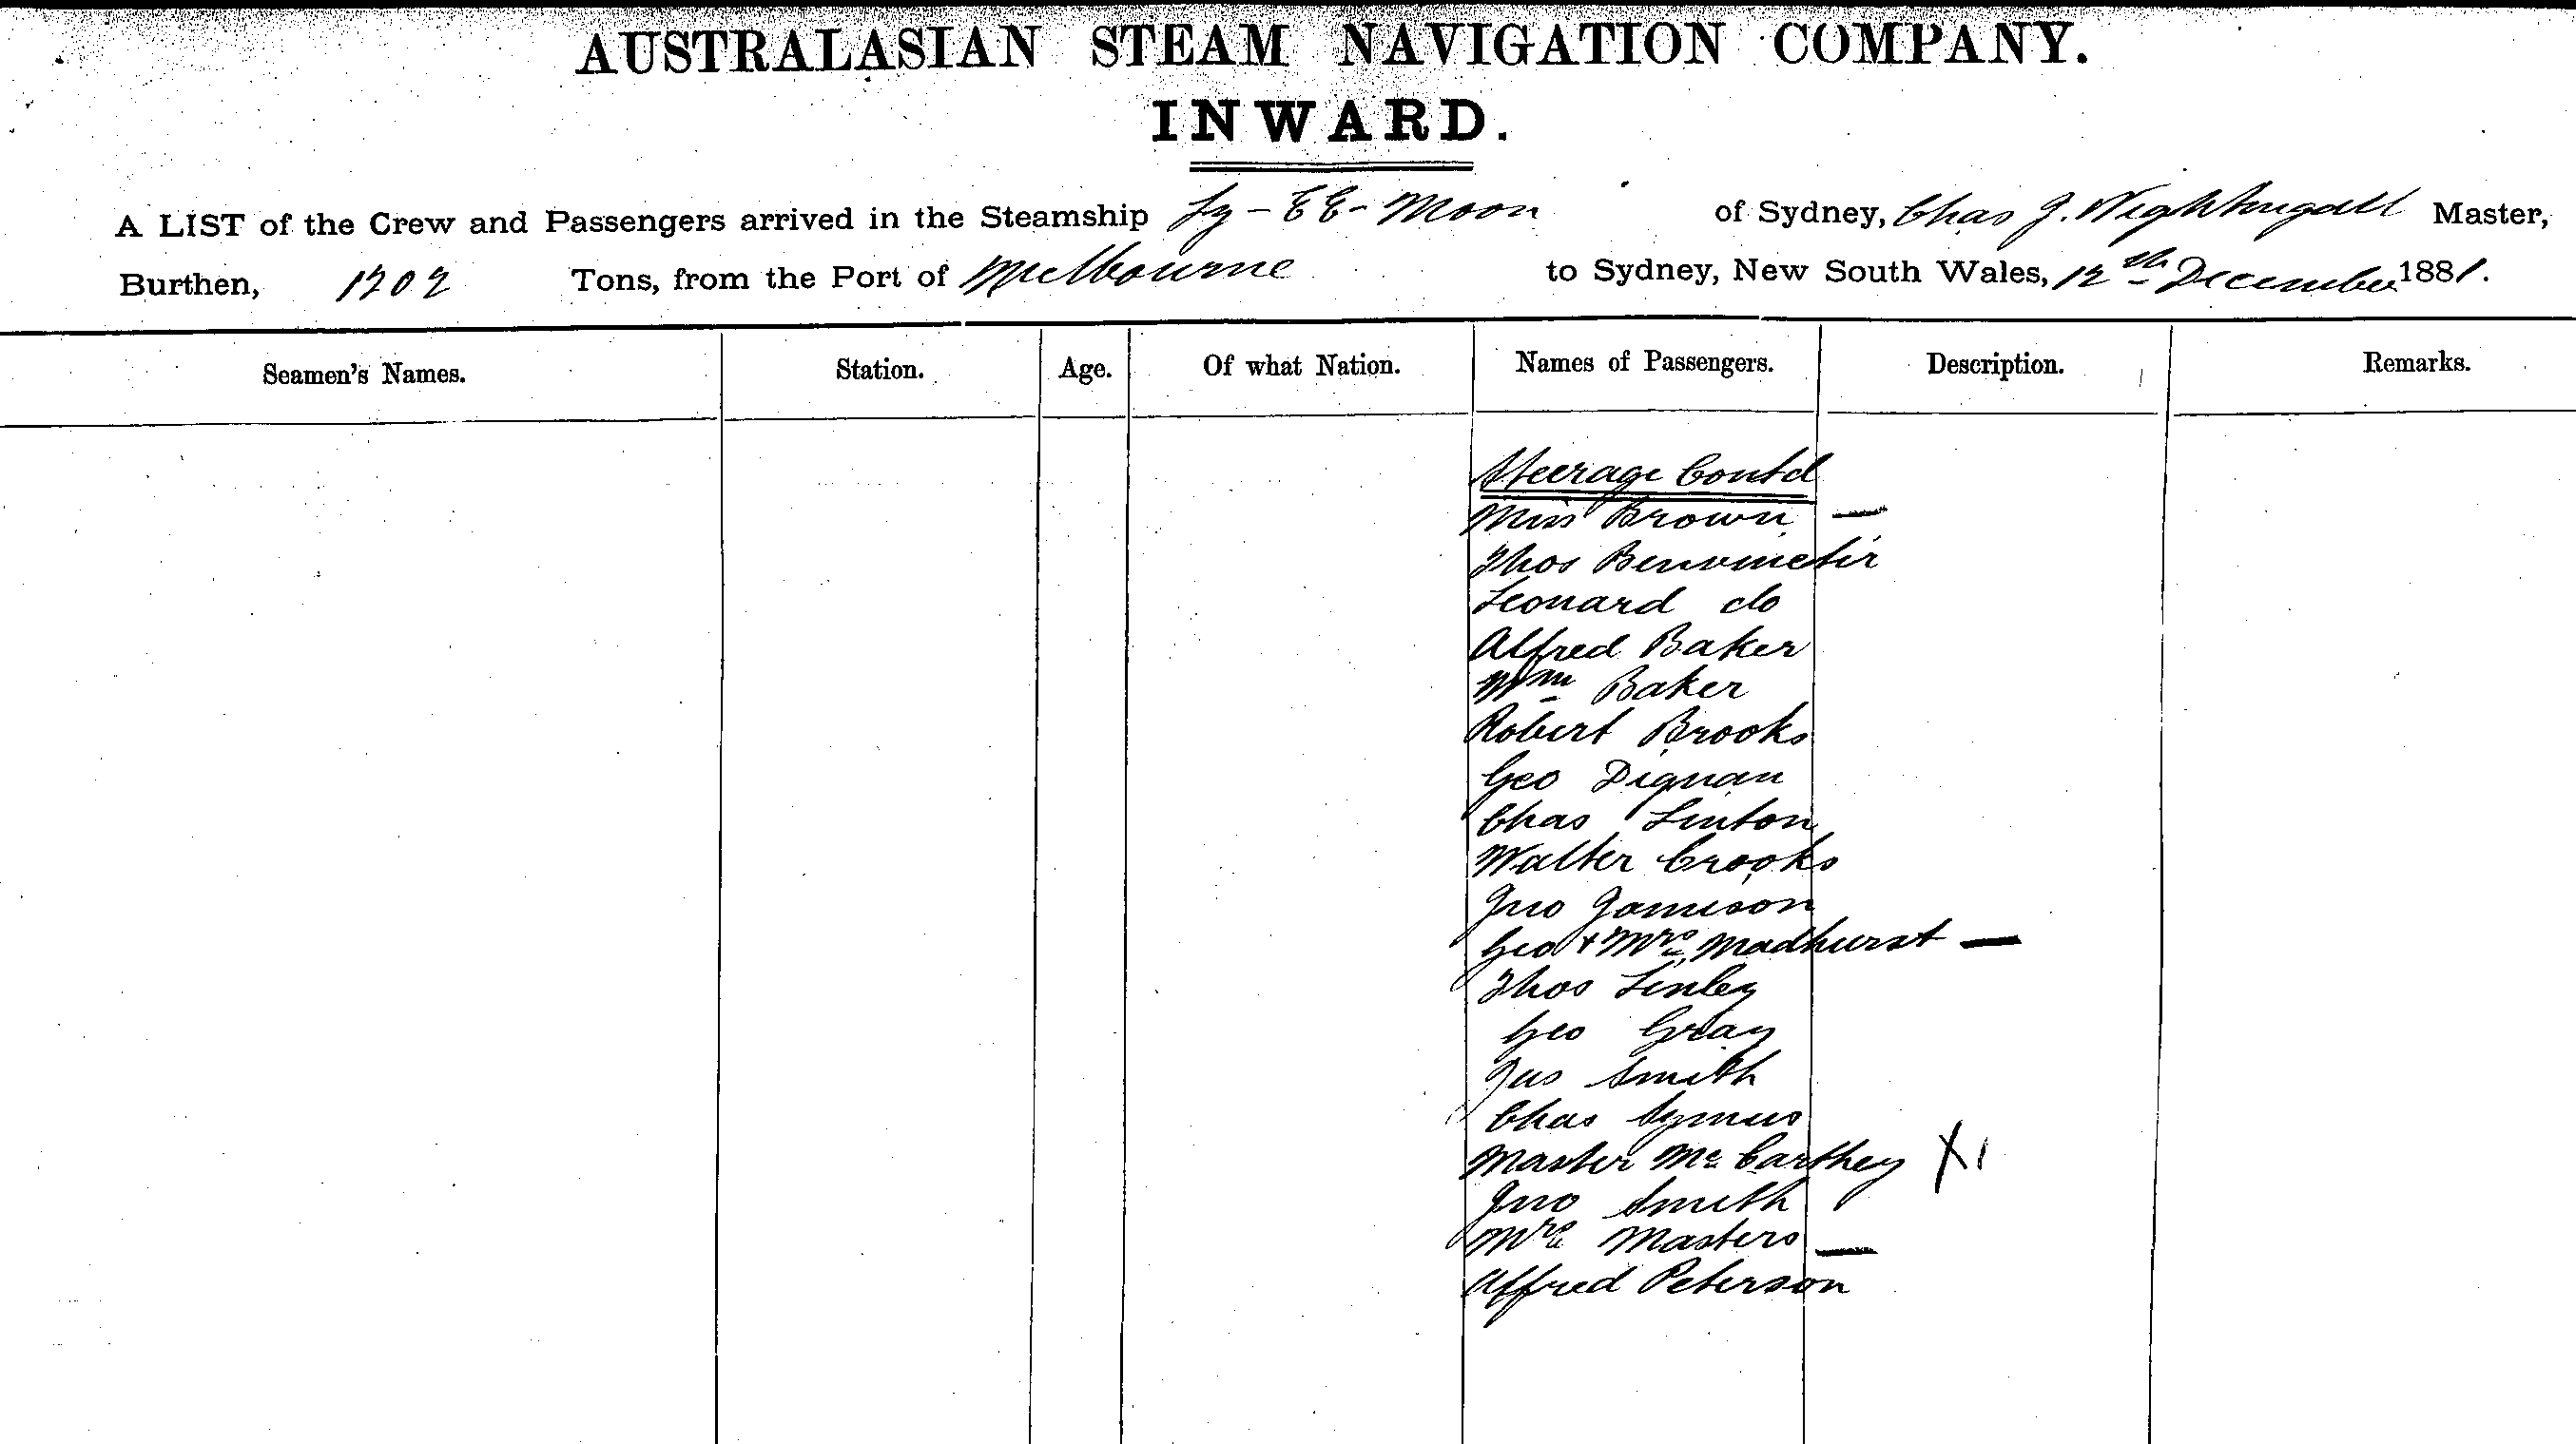 AUSTRALASIAN STEAM NAVIGATION COMPANY.
INWARD.
A LIST of the Crew and Passengers arrived in the Steamship Ly-EE-Moon of Sydney, Chas J. Nightingall Master,
Burthen, 1202 Tons, from the Port of Melbourne to Sydney, New South Wales, 12th December 1881.
Seamen's Names. Station. Age. Of what Nation. Names of Passengers. Description. Remarks.
Steerage Contd
Miss Brown —
Thos
Leonard do
Alfred Baker
Wm Baker
Robert Brooks
Geo Dignan
Chas Linton
Walter Crooks
Jno Jamieson
Geo + Mrs Madhurst —
Thos Linley
Geo Gray
Jas Smith
Chas
Master McCarthey X1
Jno Smith
Mrs Masters —
Alfred Peterson